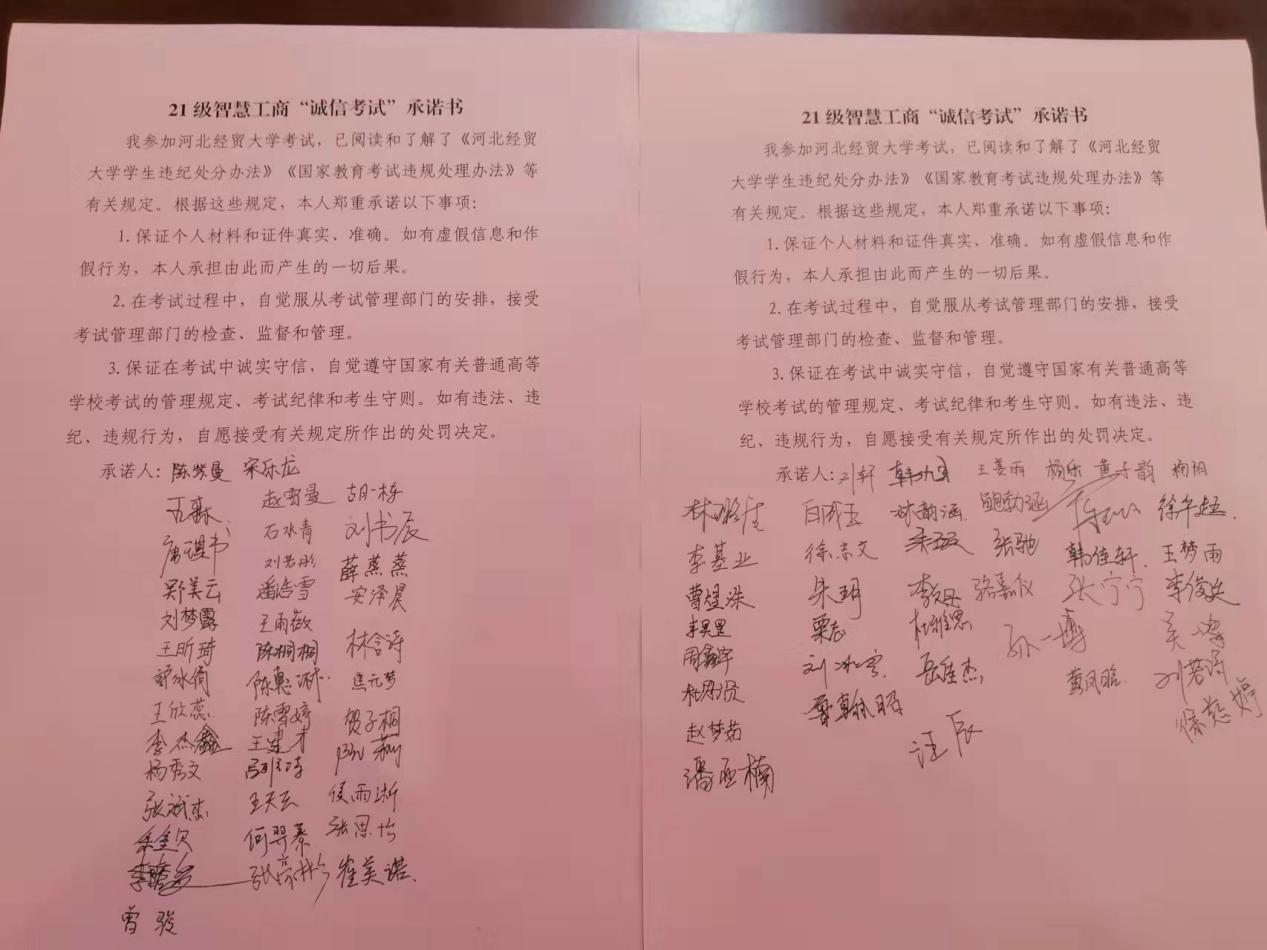 21级智慧工商“诚信考试”承诺书
我参加河北经贸大学考试，已阅读和了解了《河北经贸
大学学生违纪处分办法》《国家教育考试违规处理办法》等
有关规定。根据这些规定，本人郑重承诺以下事项：
1.保证个人材料和证件真实、准确。如有虚假信息和作
假行为，本人承担由此而产生的一切后果。
2.在考试过程中，自觉服从考试管理部门的安排，接受
考试管理部门的检查、监督和管理。
3.保证在考试中诚实守信，自觉遵守国家有关普通高等
学校考试的管理规定、考试纪律和考生守则。如有违法、违
纪、违规行为，自愿接受有关规定所作出的处罚决定。
承诺人：陈紫曼 宋乐龙
赵雪曼 胡一栋
石水青 刘书辰
郑美云 潘浩雪 薛燕燕
刘梦露 王雨薇 安泽晨
王昕琦 陈桐桐 林含涛
焦元梦
王欣蕊 陈雪婷 贺子桐
李杰鑫 王建才
杨秀文
张斌杰 王天云 侯雨断
何羿蓁 张思怡
崔美诺
曾骏
21级智慧工商“诚信考试”承诺书
我参加河北经贸大学考试，已阅读和了解了《河北经贸
大学学生违纪处分办法》《国家教育考试违规处理办法》等
有关规定。根据这些规定，本人郑重承诺以下事项：
1.保证个人材料和证件真实、准确。如有虚假信息和作
假行为，本人承担由此而产生的一切后果。
2.在考试过程中，自觉服从考试管理部门的安排，接受
考试管理部门的检查、监督和管理。
3.保证在考试中诚实守信，自觉遵守国家有关普通高等
学校考试的管理规定、考试纪律和考生守则。如有违法、违
纪、违规行为，自愿接受有关规定所作出的处罚决定。
承诺人：刘轩 王姜雨 杨乐 黄子韵 杨阳
林璐佳 林韵涵 鲍勃涵
李基业 徐崇文 张驰 韩佳轩 王梦雨
曹煜洙 朱玥 骆嘉仪 张宁宁 李俊廷
李昊昱 栗志 杜雅思 孙一博
周鑫宇 刘冰雪 岳佳杰 黄风晗 刘若涛
杜丹贤 徐慈婷
赵梦茹 汪辰
潘亚楠